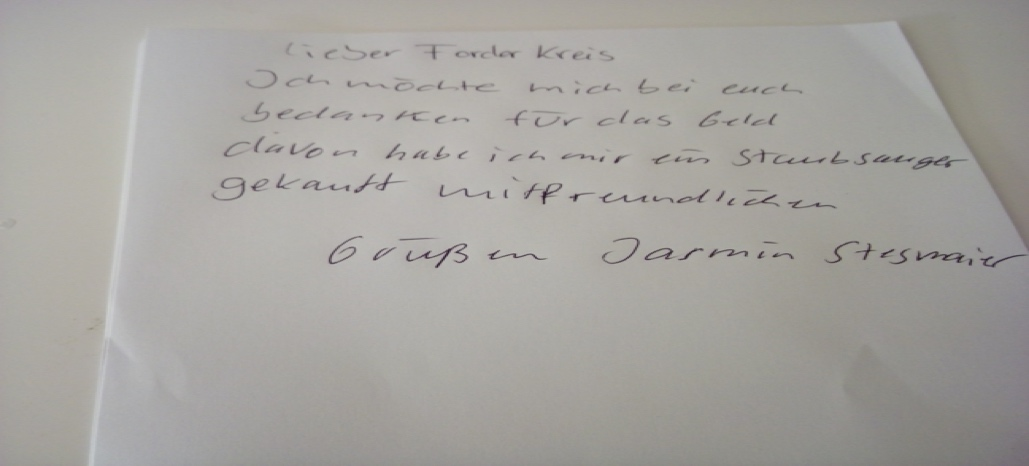 Lieber Forder Kreis
Ich möchte mich bei euch
bedanken für das Geld
davon habe ich mir ein Staubsauger
gekauft mitfreundlichen
Grüßen Jasmin